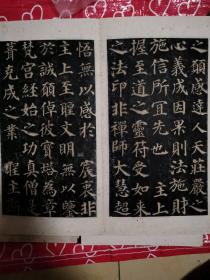 之願感達人天莊嚴之
心義成因果則法施財
施信所宜先也 主上
握至道之靈符受如來
之法印非禪師大慧超
悟無以感於 宸衷非
主上至聖文明無以鑒
於誠願倬彼寶塔為章
梵宮經始之功真僧是
葺克成之業 聖主